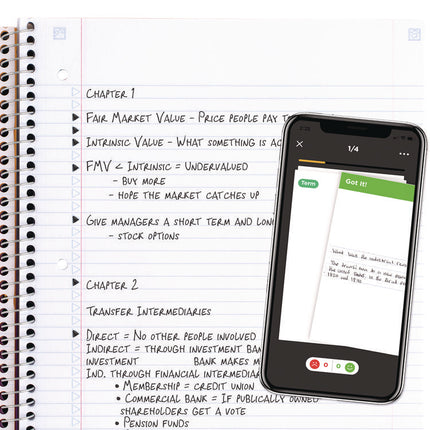 CHAPTER 1
FAIR MARKET VALUE - PRICE PEOPLE PAY
INTRINSIC VALUE - WHAT SOMETHING IS
FMV < INTRINSIC = UNDERVALUED
- BUY MORE
- HOPE THE MARKET CATCHES UP
GIVE MANAGERS A SHORT TERM AND
- STOCK OPTIONS
CHAPTER 2
TRANSFER INTERMEDIARIES
DIRECT = NO OTHER PEOPLE INVOLVED
INDIRECT = THROUGH INVESTMENT
INVESTMENT BANK MAKES
IND. THROUGH FINANCIAL
• MEMBERSHIP = CREDIT UNION
• COMMERCIAL BANK = IF PUBLICALLY OWNED
SHAREHOLDERS GET A VOTE
• PENSION FUNDS
1/4
Term
Got It!
What was the industrial
0 0